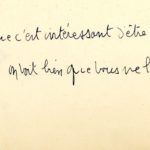 ue c'est intéressant d'être
on voit bien que vous ne l